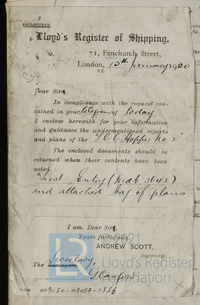 Lloyd's Register of Shipping,
71, Fenchurch Street,
London, 15th January 1920
E.C.
Dear Sir,
In compliance with the request contained
in your telegram of today
I enclose herewith for your information
and guidance the undermentioned reports
and plans of the "I.C. Hopper No
The enclosed documents should be
returned when their contents have been
noted.
First Entry
and attached
of plans
I am, Dear Sir,
Yours faithfully,
ANDREW SCOTT,
Secretary.
The Secretary,
Glasgow
Lloyd's Register
Foundation